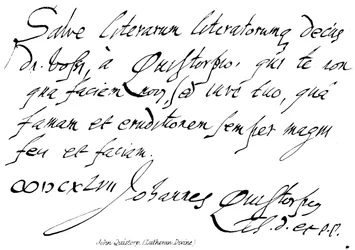 Salve literarum literatorumq decus
Dn. Vossi, à Quistorpio, qui te non
qua faciem , sed iure tuo, quà
famam et eruditionem semper magni
feci et faciam.
Johannes Quistorpius
D. et P.P.
John Quistorp. (Lutheran Divine)